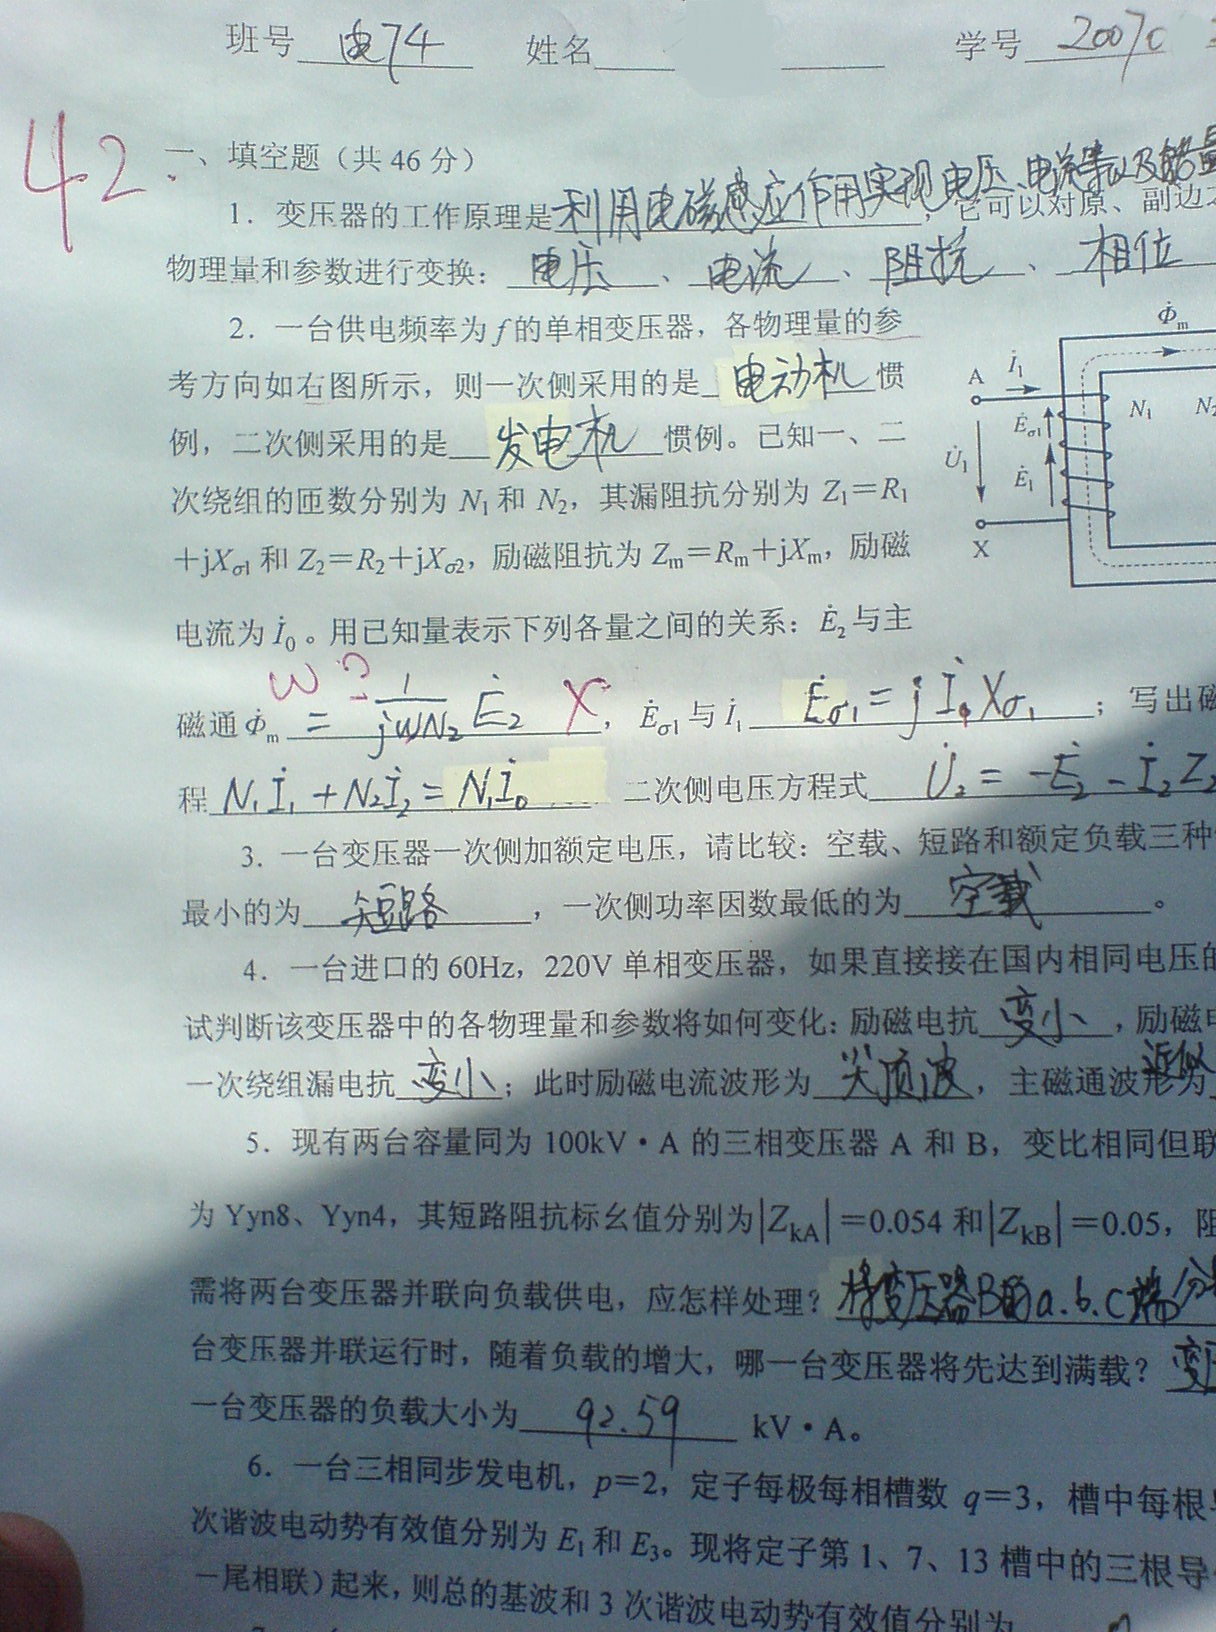 班号 电74 姓名 学号 20070
42
一、填空题（共 46 分）
1．变压器的工作原理是利用电磁感应作用实现电压、电流等以及能量，它可以对原、副边
物理量和参数进行变换：电压、电流、阻抗、相位
2．一台供电频率为 f 的单相变压器，各物理量的参
考方向如右图所示，则一次侧采用的是 电动机 惯
例，二次侧采用的是 发电机 惯例。已知一、二
次绕组的匝数分别为 N₁ 和 N₂，其漏阻抗分别为 Z₁＝R₁
＋jXσ1 和 Z₂＝R₂＋jXσ2，励磁阻抗为 Zm＝Rm＋jXm，励磁
电流为 İ₀。用已知量表示下列各量之间的关系：Ė₂与主
ω ?
磁通 Φ̇m = 1/(jωN₂) Ė₂ ✗，Ėσ1 与 İ₁ Ėσ1 = jİ₀Xσ1；写出磁
程 N₁İ₁ + N₂İ₂ = N₁İ₀ 二次侧电压方程式 U̇₂ = -Ė₂ - İ₂Z₂
Φ̇m
A İ₁
Ėσ1 N₁ N₂
U̇₁ Ė₁
X
3．一台变压器一次侧加额定电压，请比较：空载、短路和额定负载三种
最小的为 短路，一次侧功率因数最低的为 空载。
4．一台进口的 60Hz，220V 单相变压器，如果直接接在国内相同电压的
试判断该变压器中的各物理量和参数将如何变化：励磁电抗 变小，励磁电
一次绕组漏电抗 变小；此时励磁电流波形为 尖顶波，主磁通波形为 近似
5．现有两台容量同为 100kV·A 的三相变压器 A 和 B，变比相同但联
为 Yyn8、Yyn4，其短路阻抗标幺值分别为|ZkA|＝0.054 和|ZkB|＝0.05，阻
需将两台变压器并联向负载供电，应怎样处理？将变压器B的a.b.c端分
台变压器并联运行时，随着负载的增大，哪一台变压器将先达到满载？变压
一台变压器的负载大小为 92.59 kV·A。
6．一台三相同步发电机，p＝2，定子每极每相槽数 q＝3，槽中每根导
次谐波电动势有效值分别为 E₁ 和 E₃。现将定子第 1、7、13 槽中的三根导
－尾相联）起来，则总的基波和 3 次谐波电动势有效值分别为